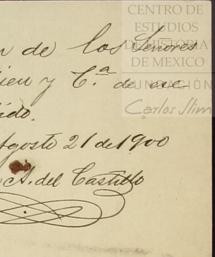 CENTRO DE
ESTUDIOS
DE HISTORIA
DE MEXICO
FUNDACIÓN
Carlos Slim
n de los Señores
ien y C.ª de ac
ido.
Agosto 21 de 1900
A. del Castillo